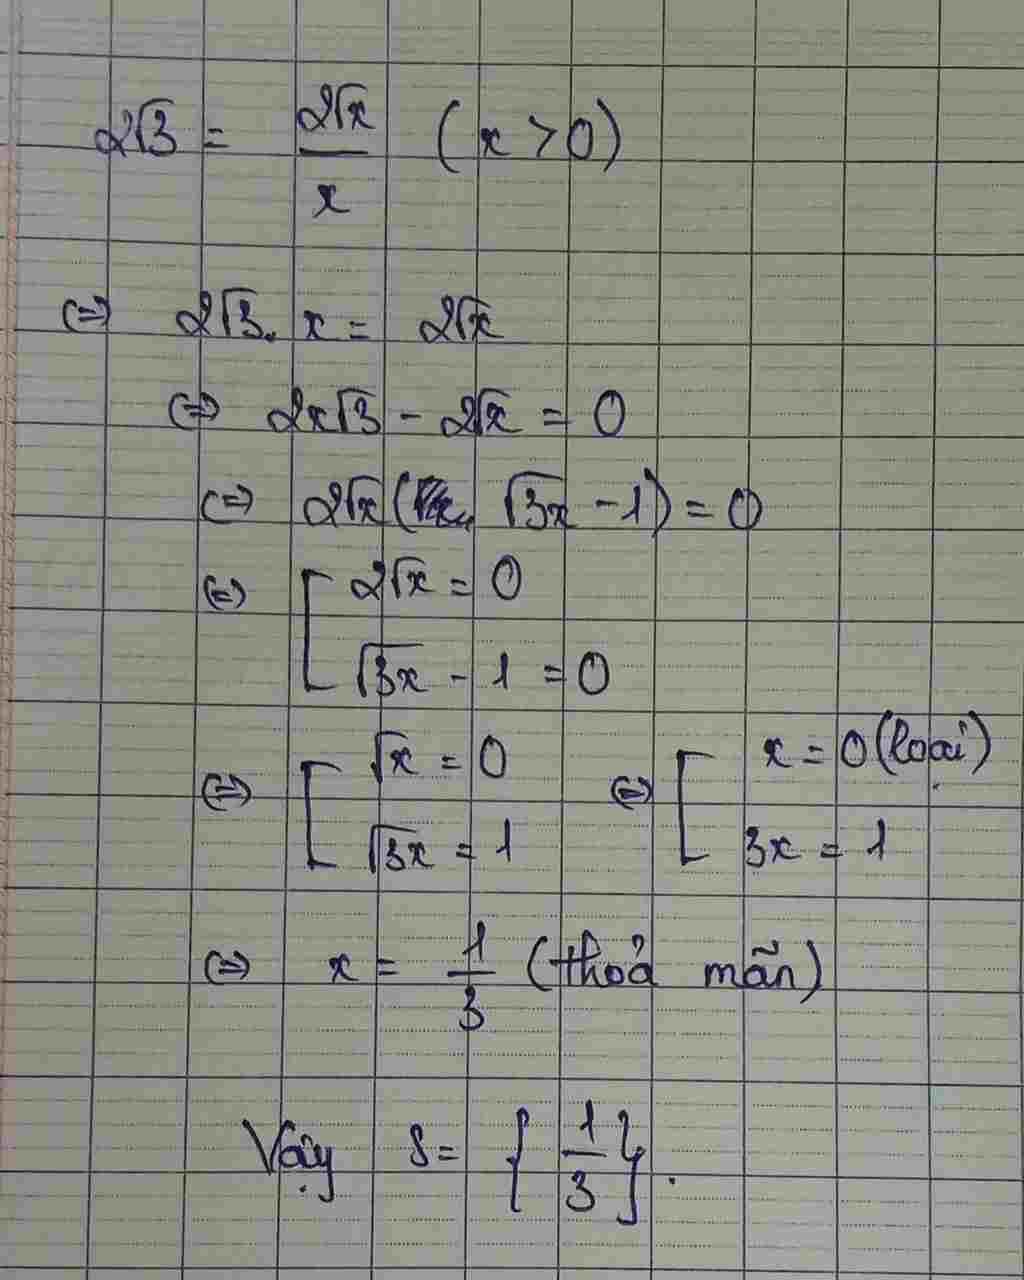 2√3 = 2√x / x (x > 0)
(=) 2√3. x = 2√x
(=) 2x√3 - 2√x = 0
(=) 2√x ( √3x - 1) = 0
(=) [ 2√x = 0
√3x - 1 = 0
(=) [ √x = 0 (=) [ x = 0 (loại)
√3x = 1 3x = 1
(=) x = 1/3 (thoả mãn)
Vậy S = { 1/3 }.